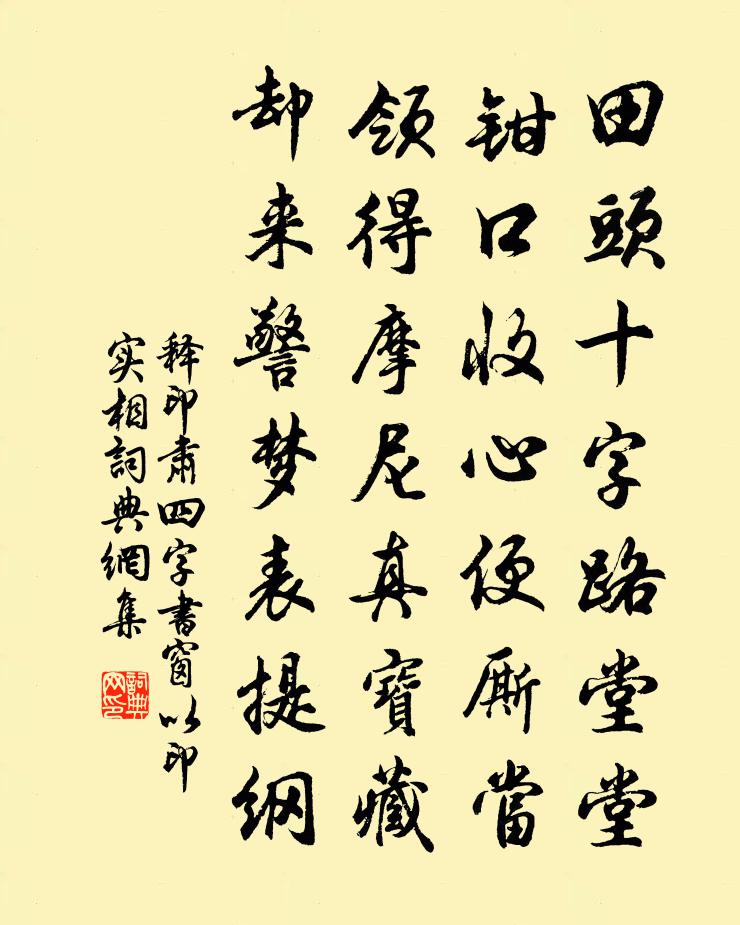 田頭十字路堂堂
钳口收心便厮當
领得摩尼真寶藏
却来警梦表提纲
释印肃四字書窗以印
实相詞典網集
詞典网印